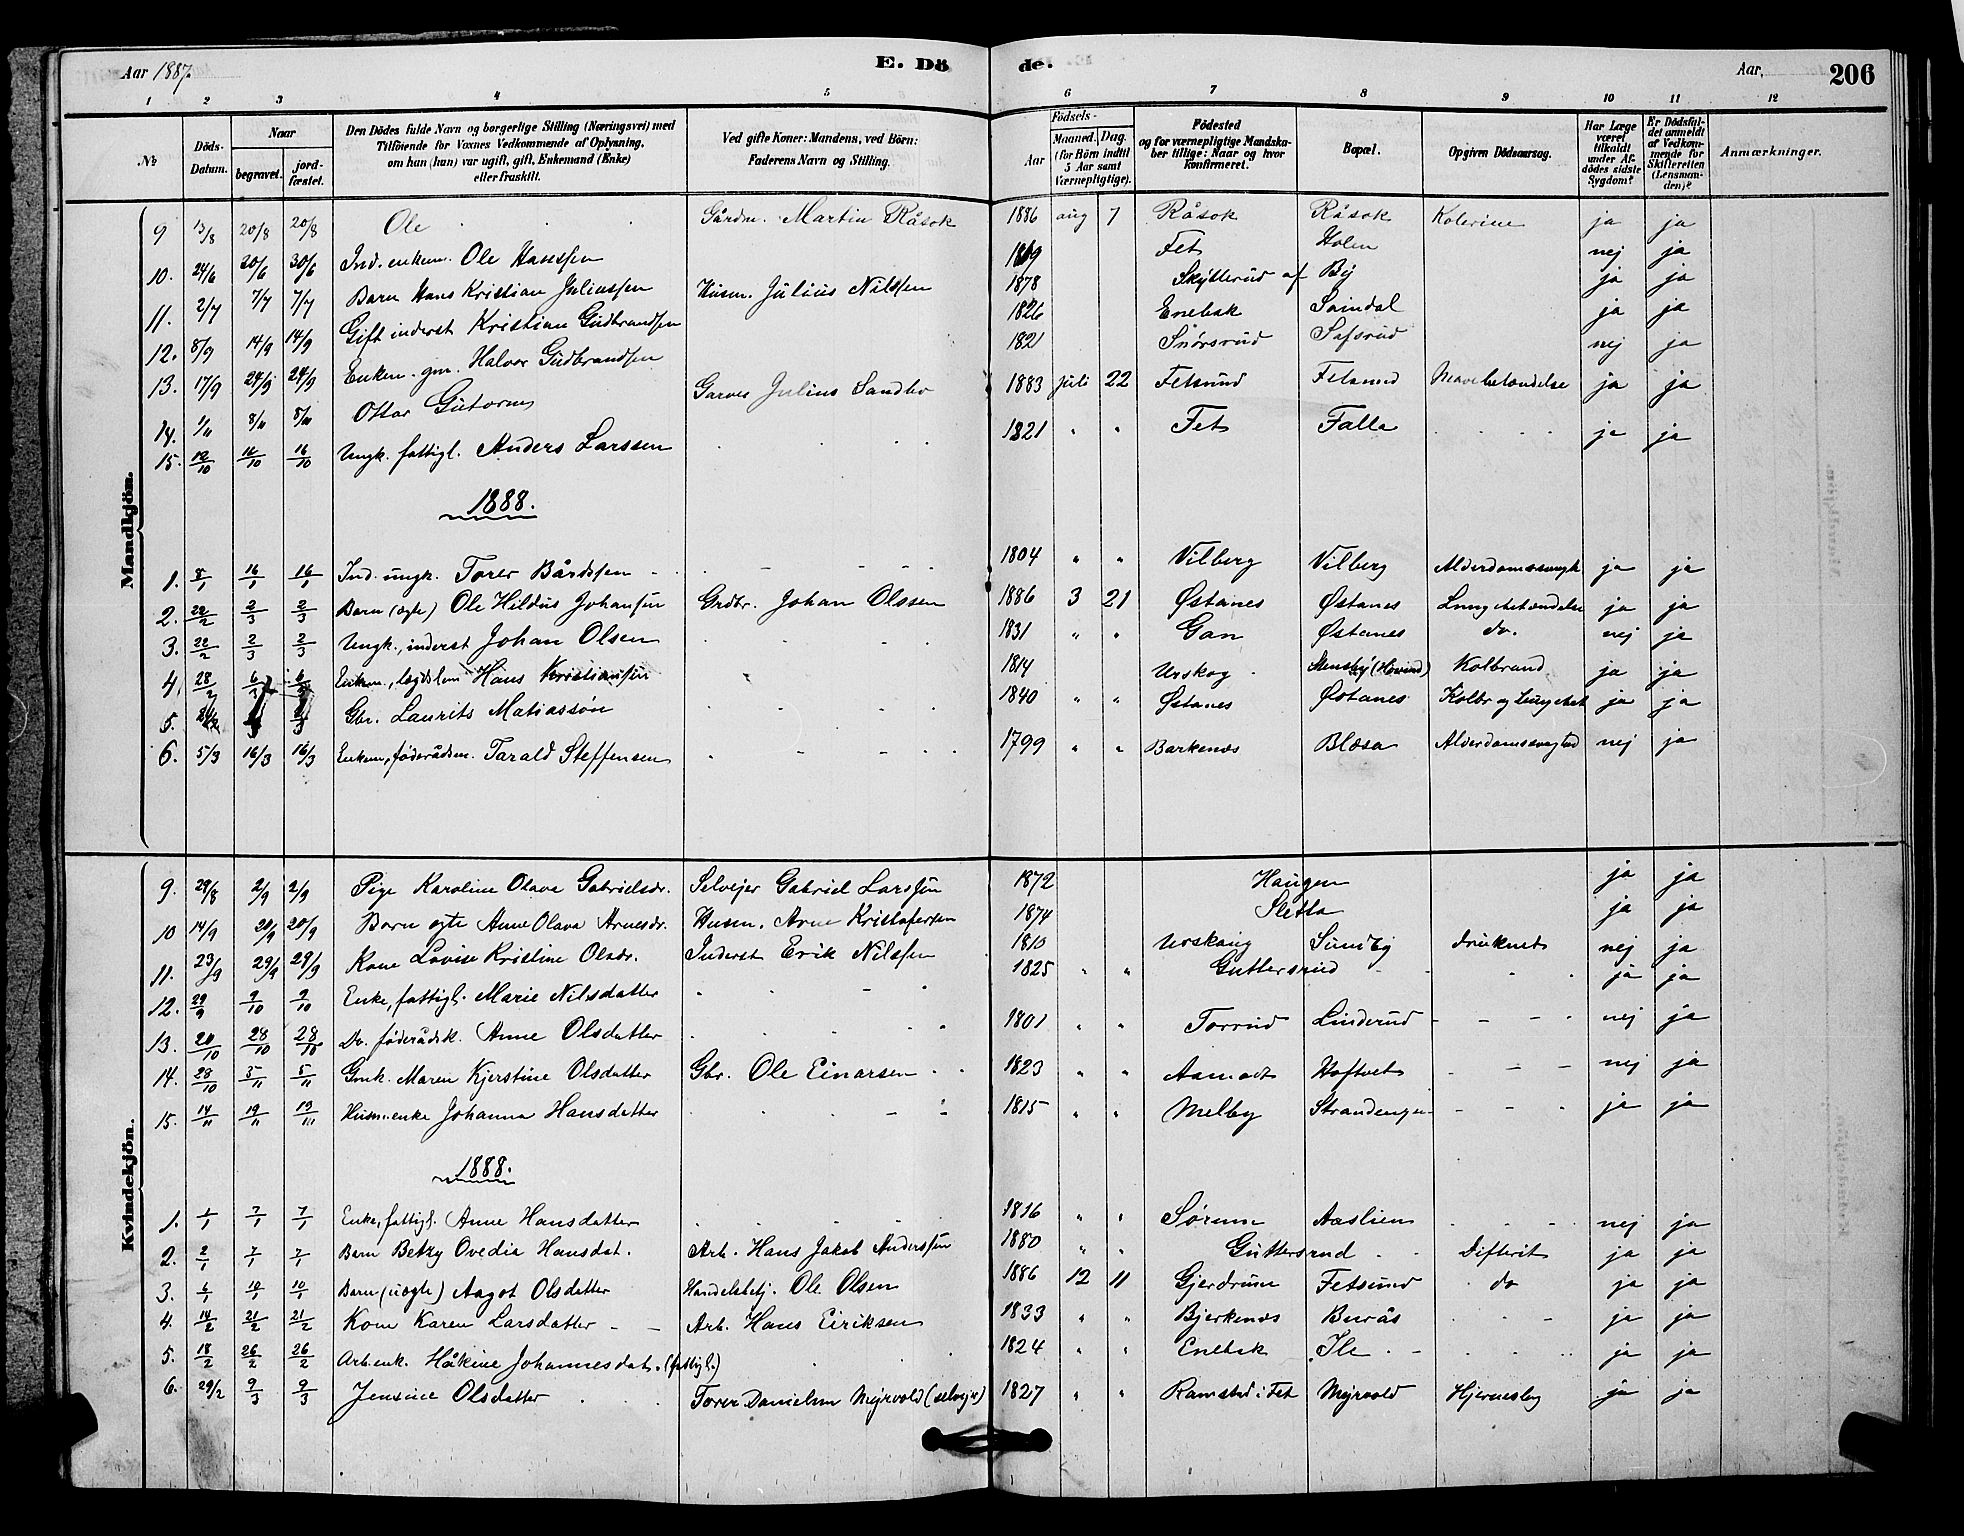 Aar 1887.
E. Dö de.
Aar,
206
1 2 3 4 5 6 7 8 9 10 11 12
No
Döds-Datum.
Naar
begravet.
jord-fæstet.
Den Dödes fulde Navn og borgerlige Stilling (Næringsvei) med Tilföiende for Voxnes Vedkommende af Oplysning, om han (hun) var ugift, gift, Enkemand (Enke) eller fraskilt.
Ved gifte Koner: Mandens, ved Börn: Faderens Navn og Stilling.
Födsels-
Aar
Maaned. Dag.
(for Börn indtil 5 Aar samt Værnepligtige).
Födested og for værnepligtige Mandskaber tillige: Naar og hvor konfirmeret.
Bopæl.
Opgiven Dödsaarsag.
Har Læge været tilkaldt under Afdödes sidste Sygdom?
Er Dödsfaldet anmeldt af Vedkommende for Skifteretten (Lensmanden)?
Anmærkninger.
Mandkjön.
9 13/8 20/8 20/8 Ole Gårdm. Martin Råsok 1886 aug 7 Råsok Råsok Kolerine ja ja
10. 24/6 30/6 30/6 Ind. enkem. Ole Hanssen 1819 Fet Holen nej ja
11. 2/7 7/7 7/7 Barn Hans Kristian Juliussen Husm. Julius Nilssen 1878 Skytterud af By ja ja
12. 8/9 14/9 14/9 Gift inderst Kristian Gudbrandsen 1826 Enebak ja ja
13. 17/9 24/9 24/9 Enkem. gm. Halvor Gudbrandsen 1821 nej ja
14. 1/11 8/11 8/11 Ottar Gutorm Garver Julius Sandbo 1883 juli 22 Fetsund Fetsund Mavebetændelse ja ja
15. 12/10 16/10 16/10 Ungk. fattigl. Anders Larssen 1821 " " Fet Falla ja ja
1888.
1. 8/1 16/1 16/1 Ind. ungk. Torer Bårdssen 1804 " " Vilberg Vilberg Alderdomssvagh ja ja
2. 22/2 2/3 2/3 Barn (ægte) Ole Hildus Johansen Grdbr. Johan Olssen 1886 3 21 Østanes Østanes Lungebetændelse ja ja
3. 22/2 2/3 2/3 Ungk., inderst Johan Olsen 1831 " " Gan Østanes do. nej ja
4. 28/2 6/3 6/3 Enkem., lægdslem Hans Kristiansen 1814 Urskog Stensby (Hovind) Kolbrand ja ja
5. Gbr. Laurits Matiassøn 1840 " " Østanes Østanes Kolbr og Lungebet ja ja
6. 5/3 16/3 16/3 Enkem., føderådsm. Tarald Steffensen 1799 " " Barkenæs Blæsa Alderdomssvaghed nej ja
Kvindekjön.
9. 29/8 2/9 2/9 Pige Karoline Olava Gabrielsdr. Selvejer Gabriel Larssen 1872 Haugen ja ja
10 14/9 20/9 20/9 Barn ægte Anne Olava Arnesdr. Husm. Arne Kristofersen 1874 Sletta ja ja
11. 23/9 29/9 29/9 Kone Lovise Kristine Olsdr. Inderst Erik Nilssen 1810 Urskaug Sundby druknet nej ja
12. 29/9 9/10 9/10 Enke, fattigl. Marie Nilsdatter 1825 " " Guttersrud ja ja
13. 20/10 28/10 28/10 Do. føderådsk. Anne Olsdatter 1801 " " Torrud Linderud nej ja
14. 28/10 5/11 5/11 Gmk. Maren Kjerstine Olsdatter Gbr. Ole Einarsen 1823 " " Aamodt Hoftvet nej ja
15. 14/11 19/11 19/11 Husm.enke Johanna Hansdatter 1815 " " Melby Strandengen ja ja
1888.
1. 1/1 7/1 7/1 Enke, fattigl. Anne Hansdatter 1816 " " Sørum Aaslien nej ja
2. 2/1 7/1 7/1 Barn Betzy Ovedia Hansdat. Arb. Hans Jakob Anderssen 1880 " " Guttersrud Difterit ja ja
3. 6/1 10/1 10/1 Barn (uægte) Aagot Olsdatter Handelsbetj. Ole Olsen 1886 12 11 Gjerdrum Fetsund do ja ja
4. 14/2 21/2 21/2 Kone Karen Larsdatter Arb. Hans Eiriksen 1833 " " Bjerkenæs Burås ja ja
5. 18/2 26/2 26/2 Arb.enk. Håkine Johannesdat. (fattigl.) 1824 " " Enebak Ile ja ja
6. 29/2 9/3 9/3 Jensine Olsdatter Torer Danielsen Myrvold (selvejer) 1827 " " Ramstad i Fet Myrvold Hjerneslag ja ja